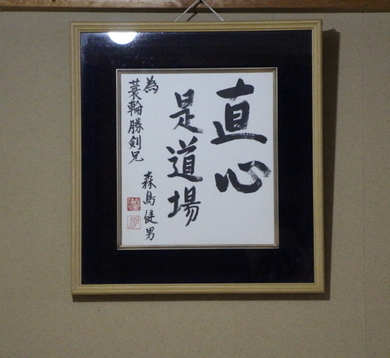 直心
是道場
為
蓑輪勝剣兄
森島健男